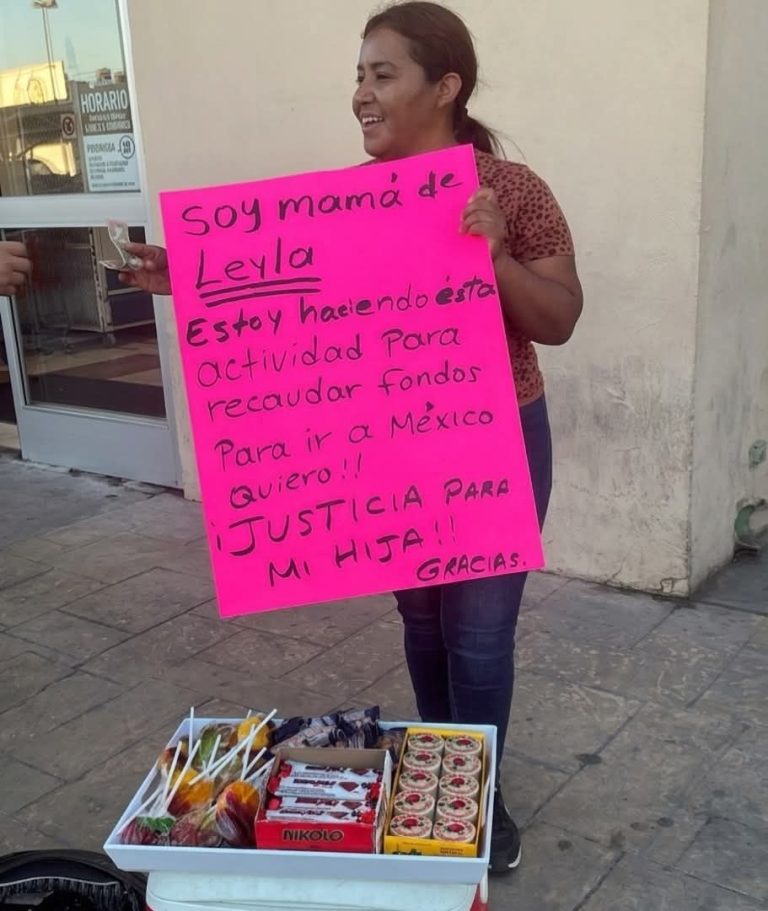 HORARIO
Soy mamá de
Leyla
Estoy haciendo ésta
actividad Para
recaudar fondos
Para ir a México
Quiero!!
¡JUSTICIA PARA
MI HIJA!!
GRACIAS.
NIKOLO